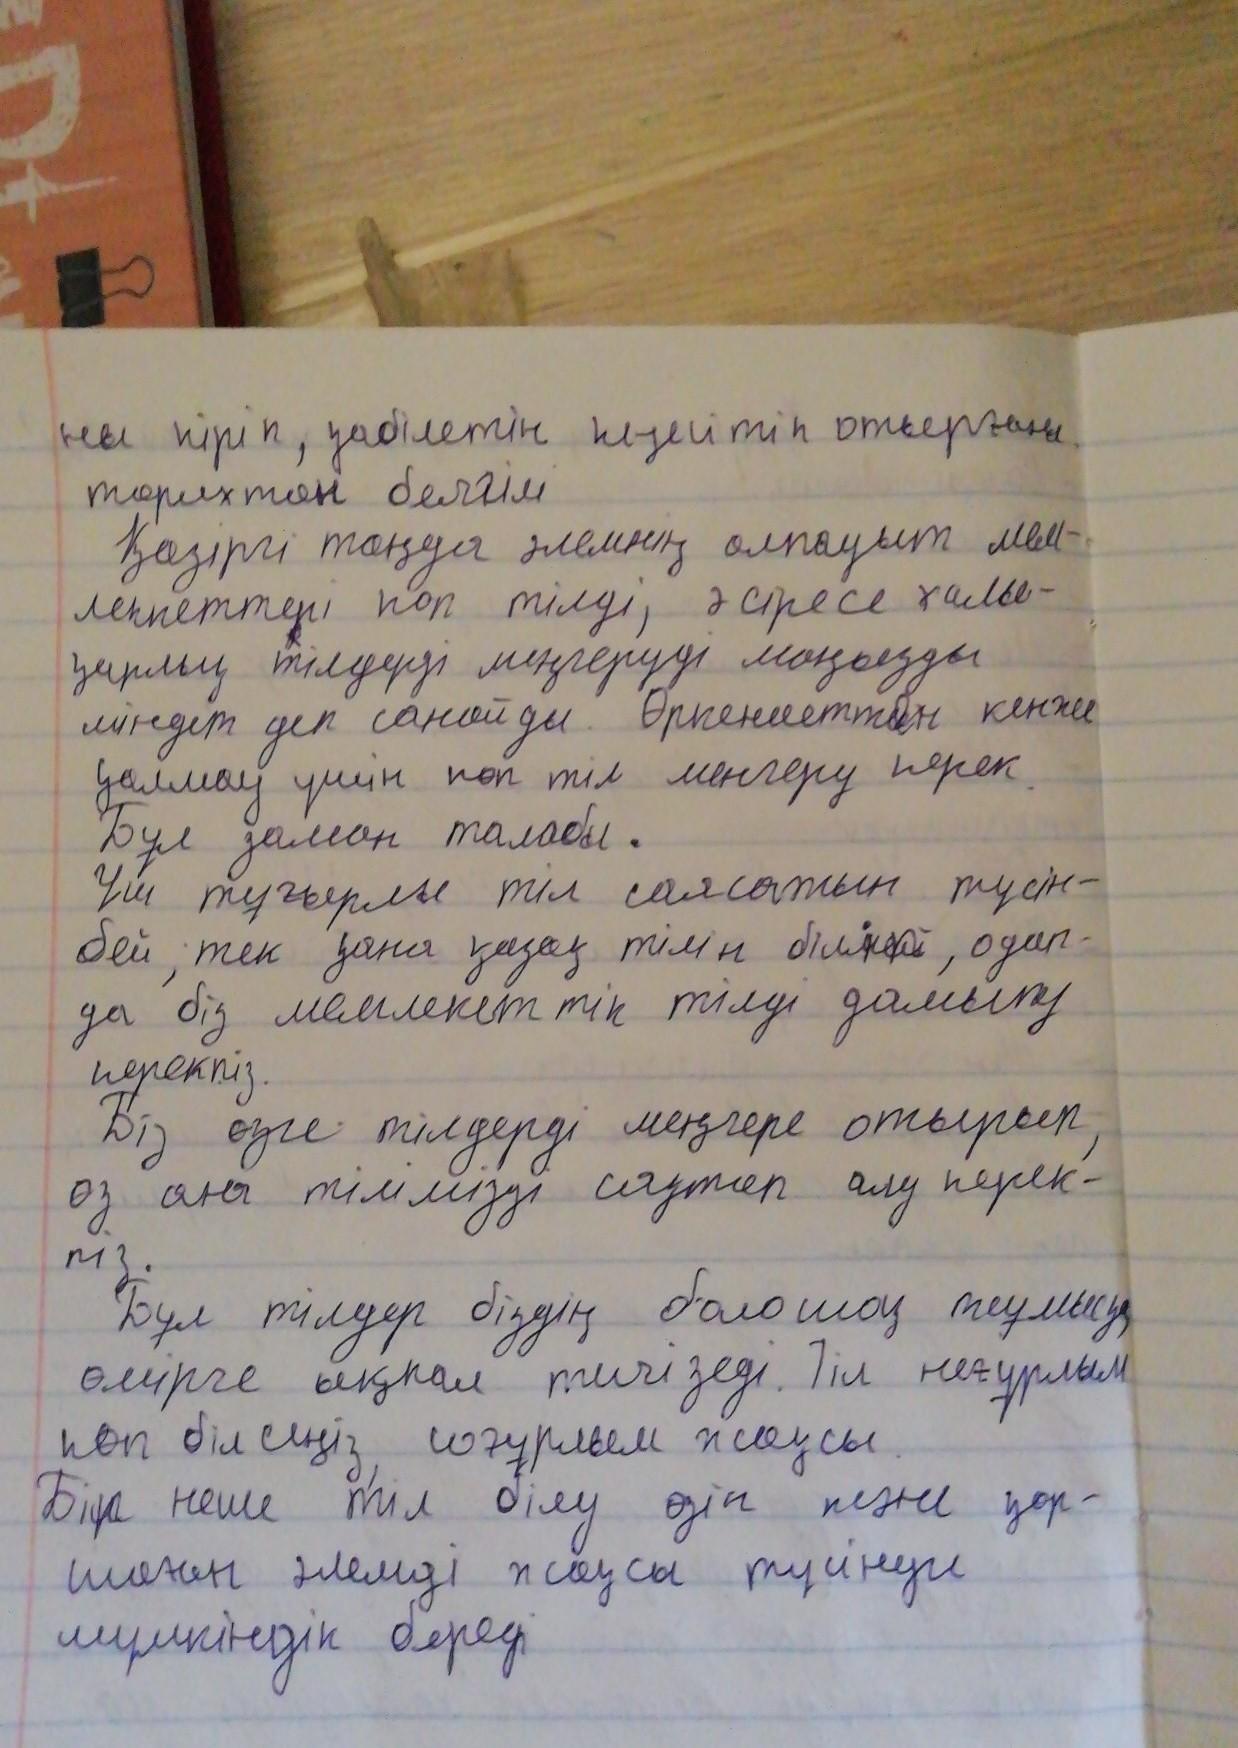 ны кіріп, қабілетін кеңейтіп отырғаны
тарихтан белгілі
Қазіргі таңда әлемнің алпауыт мем-
лекеттері көп тілді, әсіресе халы-
қарлық тілдерді меңгеруді маңызды
міндет деп санайды. Өркениеттен кенже
қалмау үшін көп тіл меңгеру керек.
Бұл заман талабы.
Үш тұғырлы тіл саясатын түсін-
бей, тек қана қазақ тілін білмей, одан-
да біз мемлекеттік тілді дамыту
керекпіз.
Біз өзге тілдерді меңгере отырып,
өз ана тілімізді сақтап алу керек-
піз.
Бұл тілдер біздің болошақ жұмысқа,
өмірге ықпал тигізеді. Тіл неғұрлым
көп білсеңіз, соғұрлым жақсы.
Бір неше тіл білу өзін және қор-
шаған әлемді жақсы түсінуге
мүмкіндік береді